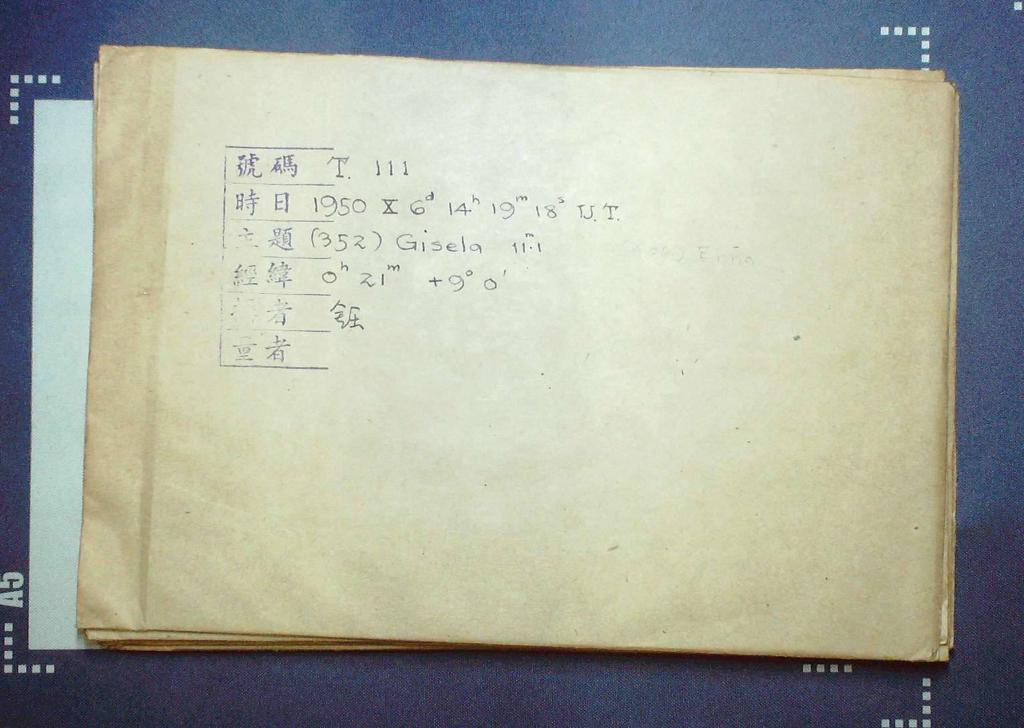 號碼 T. 111
時日 1950 X 6ᵈ 14ʰ 19ᵐ 18ˢ U.T.
主題 (352) Gisela 11ᵐ.1
經緯 0ʰ 21ᵐ +9° 0'
者
者
A5